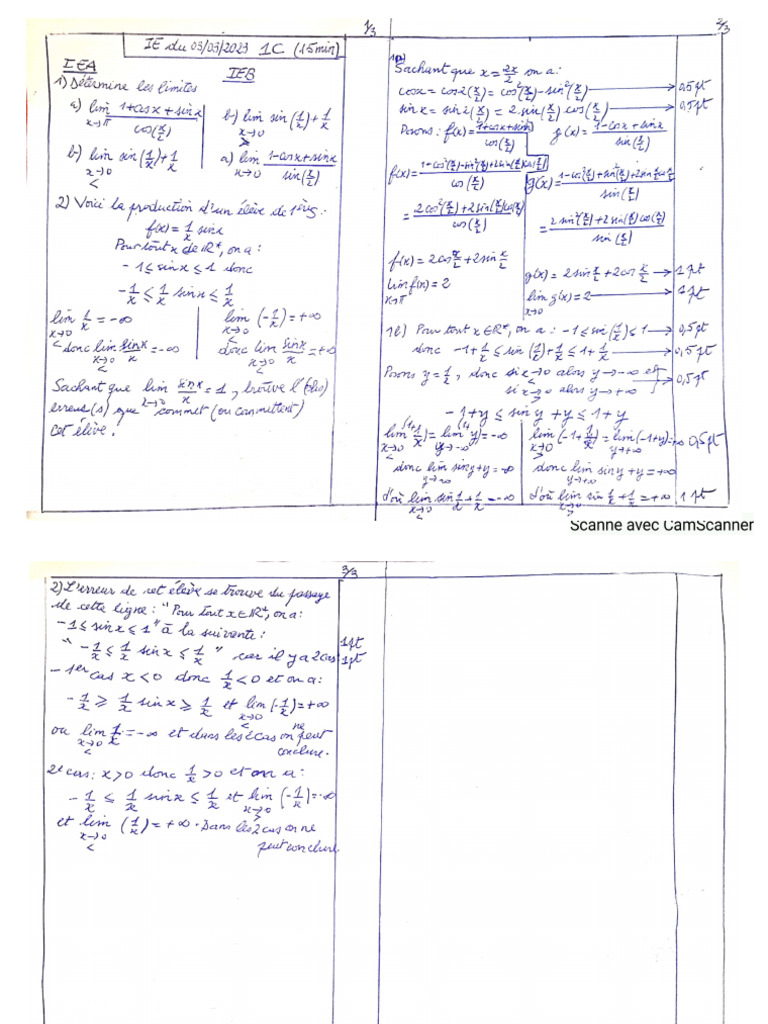 1/3
IE du 03/03/2023 1C (15min)
IEA
IEB
1) Détermine les limites
a) lim x→π (1+cosx+sinx)/cos(x/2)
b) lim x→0 > sin(1/x)+1/x
b) lim x→0 < sin(1/x)+1/x
a) lim x→0 (1-cosx+sinx)/sin(x/2)
2) Voici la production d'un élève de 1ère S :
f(x)= 1/x sinx
Pour tout x de ℝ*, on a :
-1 ≤ sinx ≤ 1 donc
-1/x ≤ 1/x sinx ≤ 1/x
lim x→0 < 1/x = -∞
lim x→0 < (-1/x) = +∞
donc lim x→0 < sinx/x = -∞
donc lim x→0 < sinx/x = +∞
Sachant que lim x→0 sinx/x = 1, trouve l'(les)
erreur(s) que commet (ou commettent)
cet élève.
2/3
1a)
Sachant que x = 2x/2 on a :
cosx = cos2(x/2) = cos²(x/2) - sin²(x/2) → 0,5pt
sinx = sin2(x/2) = 2 sin(x/2) cos(x/2) → 0,5pt
Posons : f(x) = (1+cosx+sinx)/cos(x/2)
g(x) = (1-cosx+sinx)/sin(x/2)
f(x) = (1+cos²(x/2)-sin²(x/2)+2sin(x/2)cos(x/2))/cos(x/2)
g(x) = (1-cos²(x/2)+sin²(x/2)+2sin(x/2)cos(x/2))/sin(x/2)
= (2cos²(x/2)+2sin(x/2)cos(x/2))/cos(x/2)
= (2sin²(x/2)+2sin(x/2)cos(x/2))/sin(x/2)
f(x) = 2cos x/2 + 2sin x/2
g(x) = 2sin x/2 + 2cos x/2 → 1pt
lim f(x) = 2 x→π
lim g(x) = 2 x→0 → 1pt
1b) Pour tout x∈ℝ*, on a : -1 ≤ sin(1/x) ≤ 1 → 0,5pt
donc -1+1/x ≤ sin(1/x)+1/x ≤ 1+1/x → 0,5pt
Posons y = 1/x, donc si x→0 < alors y→-∞ et
si x→0 > alors y→+∞ → 0,5pt
-1+y ≤ sin y + y ≤ 1+y
lim x→0 < (1+1/x) = lim y→-∞ (1+y) = -∞
lim x→0 > (-1+1/x) = lim y→+∞ (-1+y) = +∞ 0,5pt
donc lim y→-∞ sin y + y = -∞
donc lim y→+∞ sin y + y = +∞
d'où lim x→0 < sin 1/x + 1/x = -∞
d'où lim x→0 > sin 1/x + 1/x = +∞ → 1pt
Scanné avec CamScanner
3/3
2) L'erreur de cet élève se trouve du passage
de cette ligne : "Pour tout x∈ℝ*, on a :
-1 ≤ sinx ≤ 1" à la suivante : 1pt
"-1/x ≤ 1/x sinx ≤ 1/x" car il y a 2 cas 1pt
- 1er cas x<0 donc 1/x < 0 et on a :
-1/x ≥ 1/x sinx ≥ 1/x et lim x→0 < (-1/x) = +∞
ou lim x→0 < 1/x = -∞ et dans les 2 cas on ne peut
conclure.
2e cas : x>0 donc 1/x > 0 et on a :
-1/x ≤ 1/x sinx ≤ 1/x et lim x→0 > (-1/x) = -∞
et lim x→0 < (1/x) = +∞. Dans les 2 cas on ne
peut conclure.